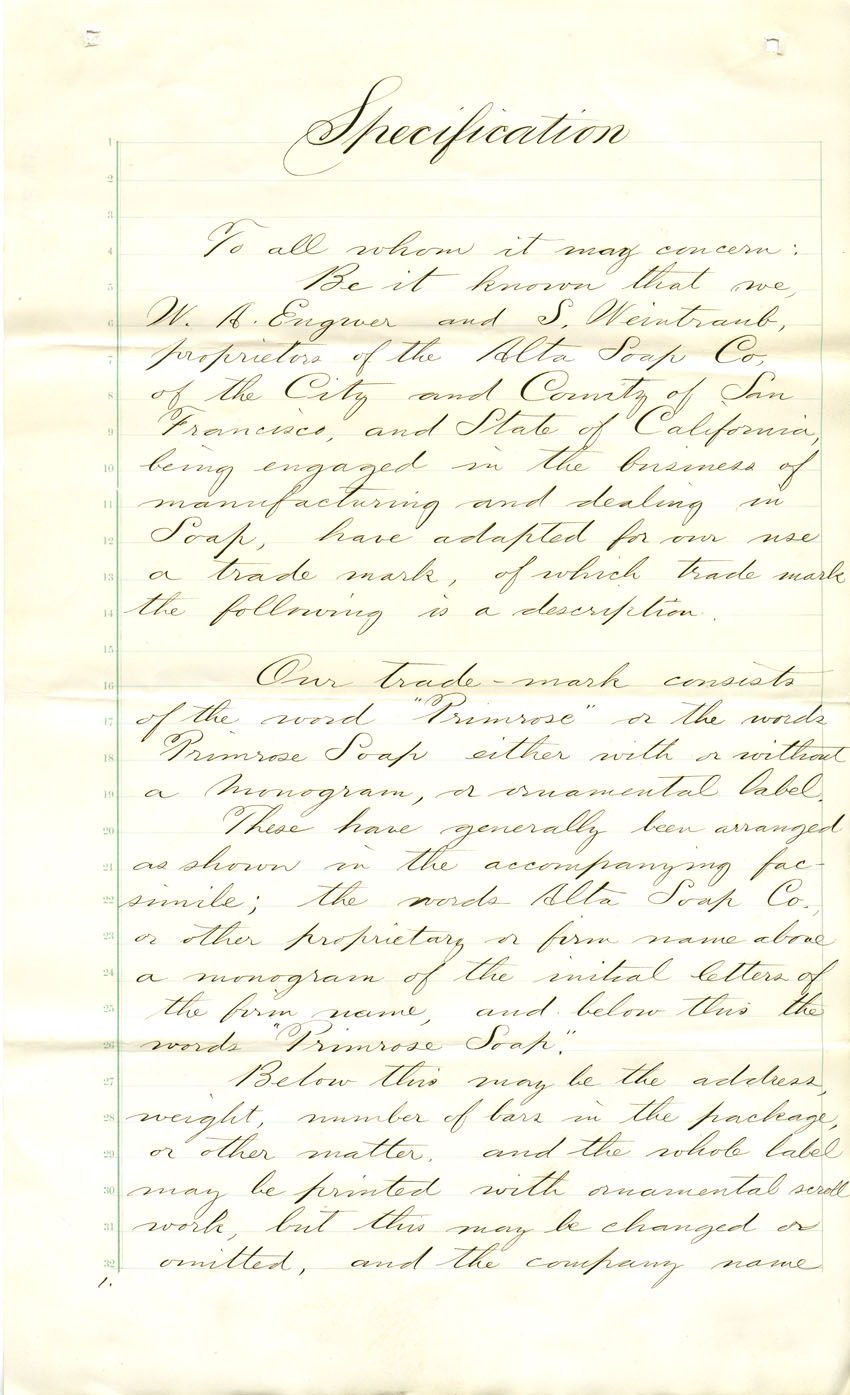 Specification
1
2
3
4 To all whom it may concern:
5 Be it known that we,
6 W. A. Engwer and S. Weintraub,
7 proprietors of the Alta Soap Co,
8 of the City and County of San
9 Francisco, and State of California,
10 being engaged in the business of
11 manufacturing and dealing in
12 Soap, have adapted for our use
13 a trade mark, of which trade mark
14 the following is a description.
15
16 Our trade-mark consists
17 of the word "Primrose" or the words
18 Primrose Soap either with or without
19 a monogram, or ornamental label.
20 These have generally been arranged
21 as shown in the accompanying fac-
22 simile; the words Alta Soap Co.,
23 or other proprietary or firm name above
24 a monogram of the initial letters of
25 the firm name, and below this the
26 words "Primrose Soap".
27 Below this may be the address,
28 weight, number of bars in the package,
29 or other matter. and the whole label
30 may be printed with ornamental scroll
31 work, but this may be changed or
32 omitted, and the company name
1.